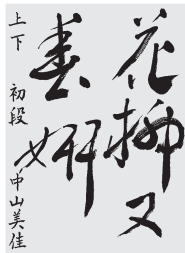 花柳又
春妍
上下 初段 中山美佳